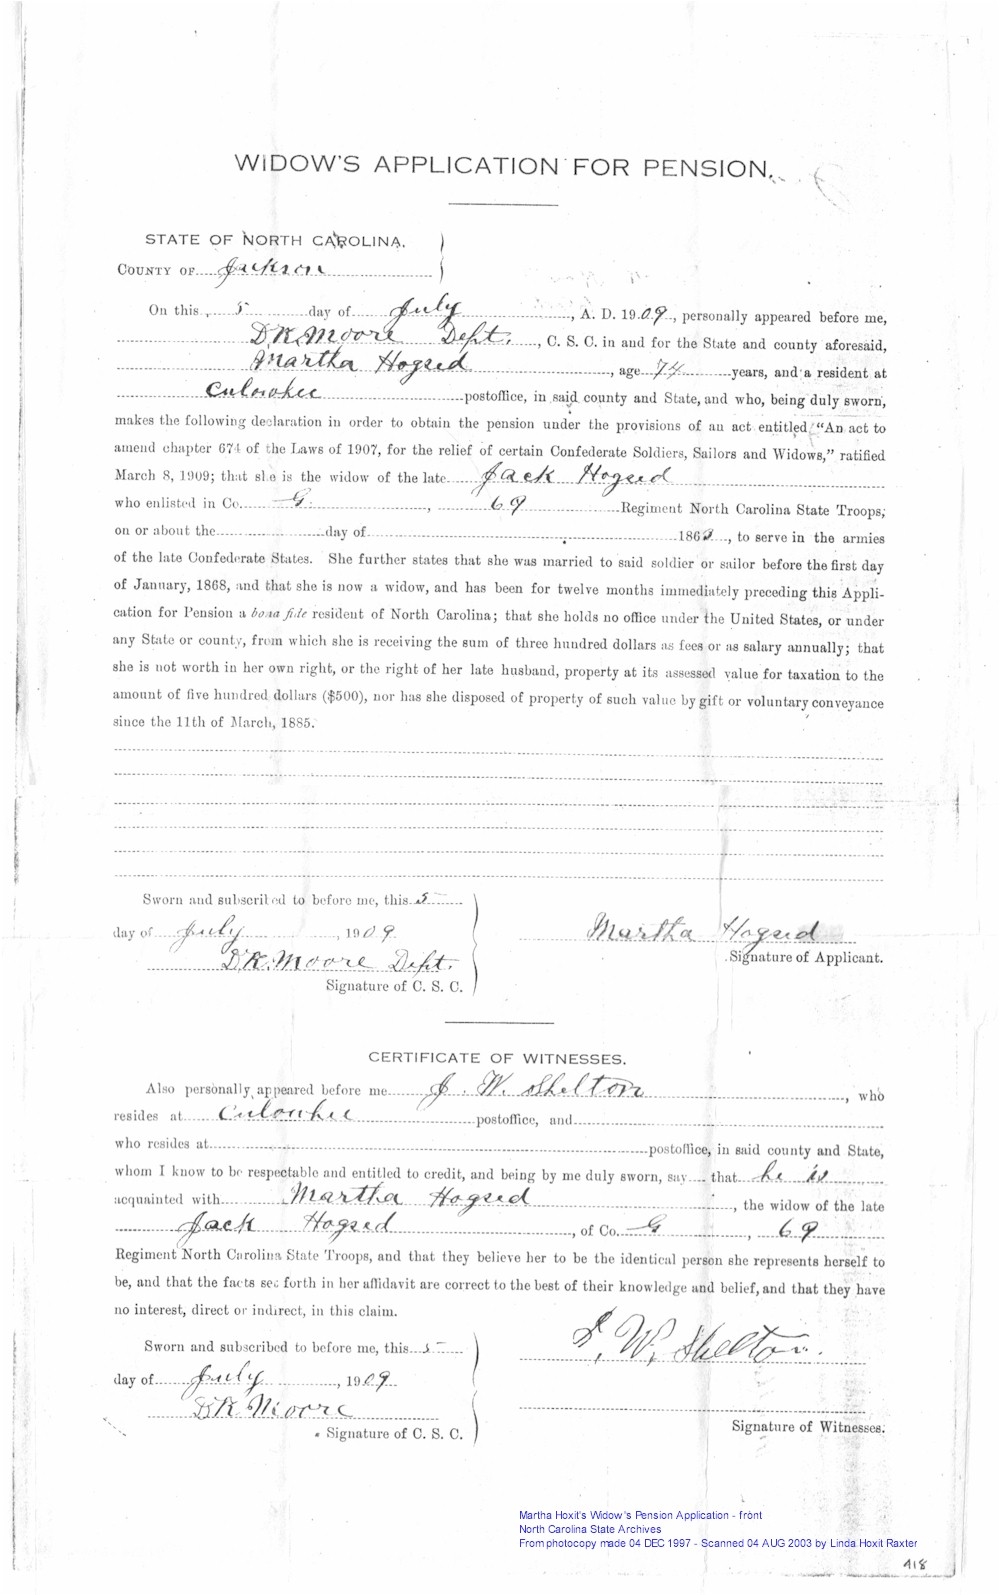 WIDOW'S APPLICATION FOR PENSION.
STATE OF NORTH CAROLINA,
COUNTY OF Jackson
On this 5 day of July, A. D. 1909, personally appeared before me,
D.K. Moore Dept., C. S. C. in and for the State and county aforesaid,
Martha Hogsed, age 74 years, and a resident at
Culowhee postoffice, in said county and State, and who, being duly sworn,
makes the following declaration in order to obtain the pension under the provisions of an act entitled "An act to
amend chapter 674 of the Laws of 1907, for the relief of certain Confederate Soldiers, Sailors and Widows," ratified
March 8, 1909; that she is the widow of the late Jack Hogsed
who enlisted in Co. G, 69 Regiment North Carolina State Troops,
on or about the day of 1862, to serve in the armies
of the late Confederate States. She further states that she was married to said soldier or sailor before the first day
of January, 1868, and that she is now a widow, and has been for twelve months immediately preceding this Appli-
cation for Pension a bona fide resident of North Carolina; that she holds no office under the United States, or under
any State or county, from which she is receiving the sum of three hundred dollars as fees or as salary annually; that
she is not worth in her own right, or the right of her late husband, property at its assessed value for taxation to the
amount of five hundred dollars ($500), nor has she disposed of property of such value by gift or voluntary conveyance
since the 11th of March, 1885.
Sworn and subscribed to before me, this 5
day of July, 1909
D.K. Moore Dept.
Signature of C. S. C.
Martha Hogsed
Signature of Applicant.
CERTIFICATE OF WITNESSES.
Also personally appeared before me J. W. Shelton, who
resides at Culowhee postoffice, and
who resides at postoffice, in said county and State,
whom I know to be respectable and entitled to credit, and being by me duly sworn, say that he is
acquainted with Martha Hogsed, the widow of the late
Jack Hogsed, of Co. G, 69
Regiment North Carolina State Troops, and that they believe her to be the identical person she represents herself to
be, and that the facts set forth in her affidavit are correct to the best of their knowledge and belief, and that they have
no interest, direct or indirect, in this claim.
Sworn and subscribed to before me, this 5
day of July, 1909
D K Moore
Signature of C. S. C.
J. W. Shelton.
Signature of Witnesses.
Martha Hoxit's Widow's Pension Application - front
North Carolina State Archives
From photocopy made 04 DEC 1997 - Scanned 04 AUG 2003 by Linda Hoxit Raxter
418